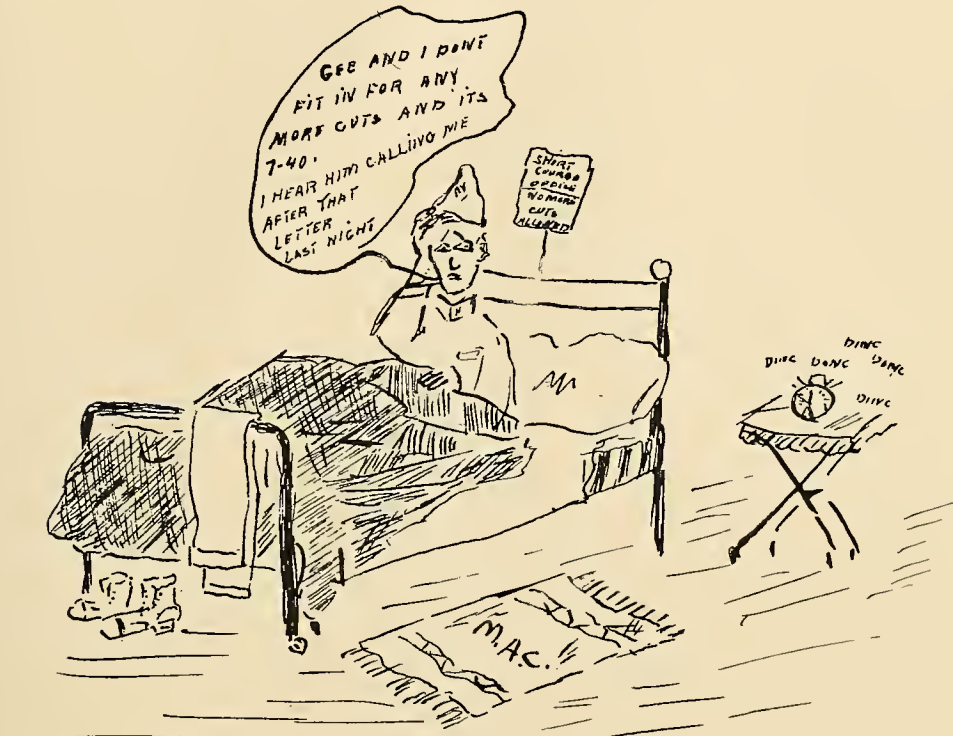 GEE AND I DONT
FIT IN FOR ANY
MORE CUTS AND ITS
7-40.
I HEAR HIM CALLING ME
AFTER THAT
LETTER
LAST NIGHT
SHORT
COURSE
OFFICE
NO MORE
CUTS
ALLOWED
DING DONG DING DONG
DING
M.A.C.